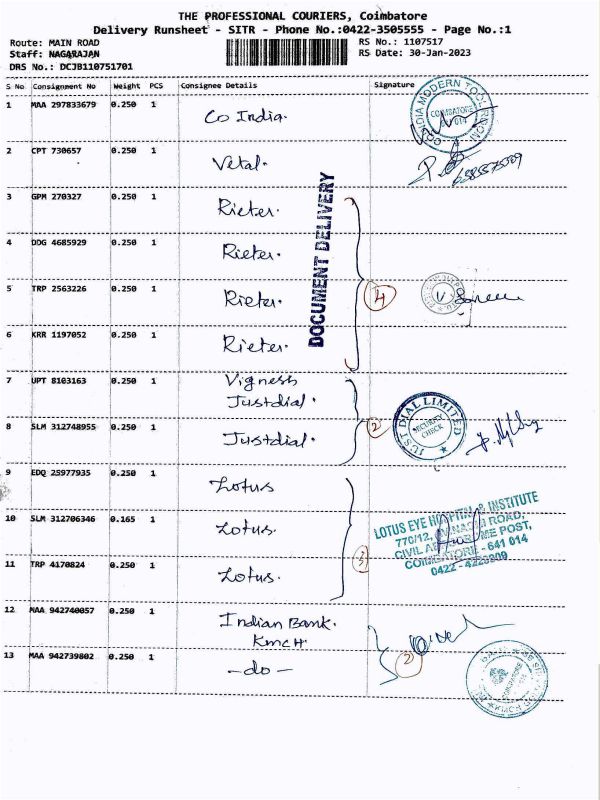 THE PROFESSIONAL COURIERS, Coimbatore
Delivery Runsheet - SITR - Phone No.:0422-3505555 - Page No.:1
Route: MAIN ROAD RS No.: 1107517
Staff: NAGARAJAN RS Date: 30-Jan-2023
DRS No.: DCJB110751701
S No Consignment No Weight PCS Consignee Details Signature
1 MAA 297833679 0.250 1 Co India.
COIMBATORE
014
2 CPT 730657 0.250 1 Vetal.
3 GPM 270327 0.250 1 Rieter.
DOCUMENT DELIVERY
4 DDG 4685929 0.250 1 Rieter.
5 TRP 2563226 0.250 1 Rieter. 4
6 KRR 1197052 0.250 1 Rieter.
7 UPT 8103163 0.250 1 Vigness
Justdial.
8 SLM 312748955 0.250 1 Justdial. 2
JUST DIAL LIMITED
SECURITY
CHECK
9 EDQ 25977935 0.250 1 Lotus
10 SLM 312706346 0.165 1 Lotus.
LOTUS EYE HOSPITAL & INSTITUTE
770/12, ROAD,
CIVIL POST,
COIMBATORE - 641 014
11 TRP 4170824 0.250 1 Lotus. 3
12 MAA 942740057 0.250 1 Indian Bank.
KMCH.
13 MAA 942739802 0.250 1 -do- 2